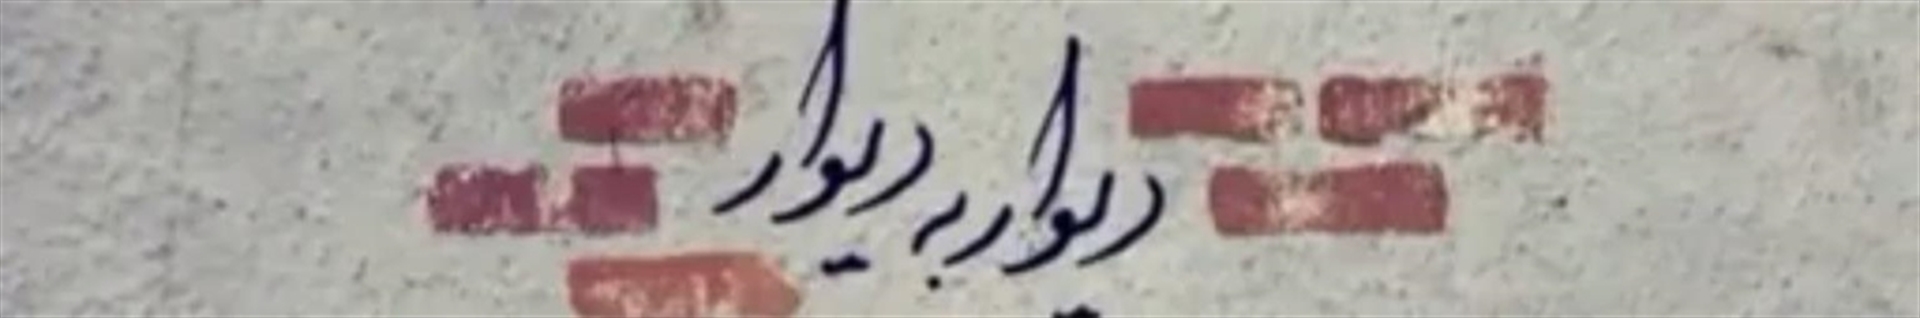 دیوار به دیوار